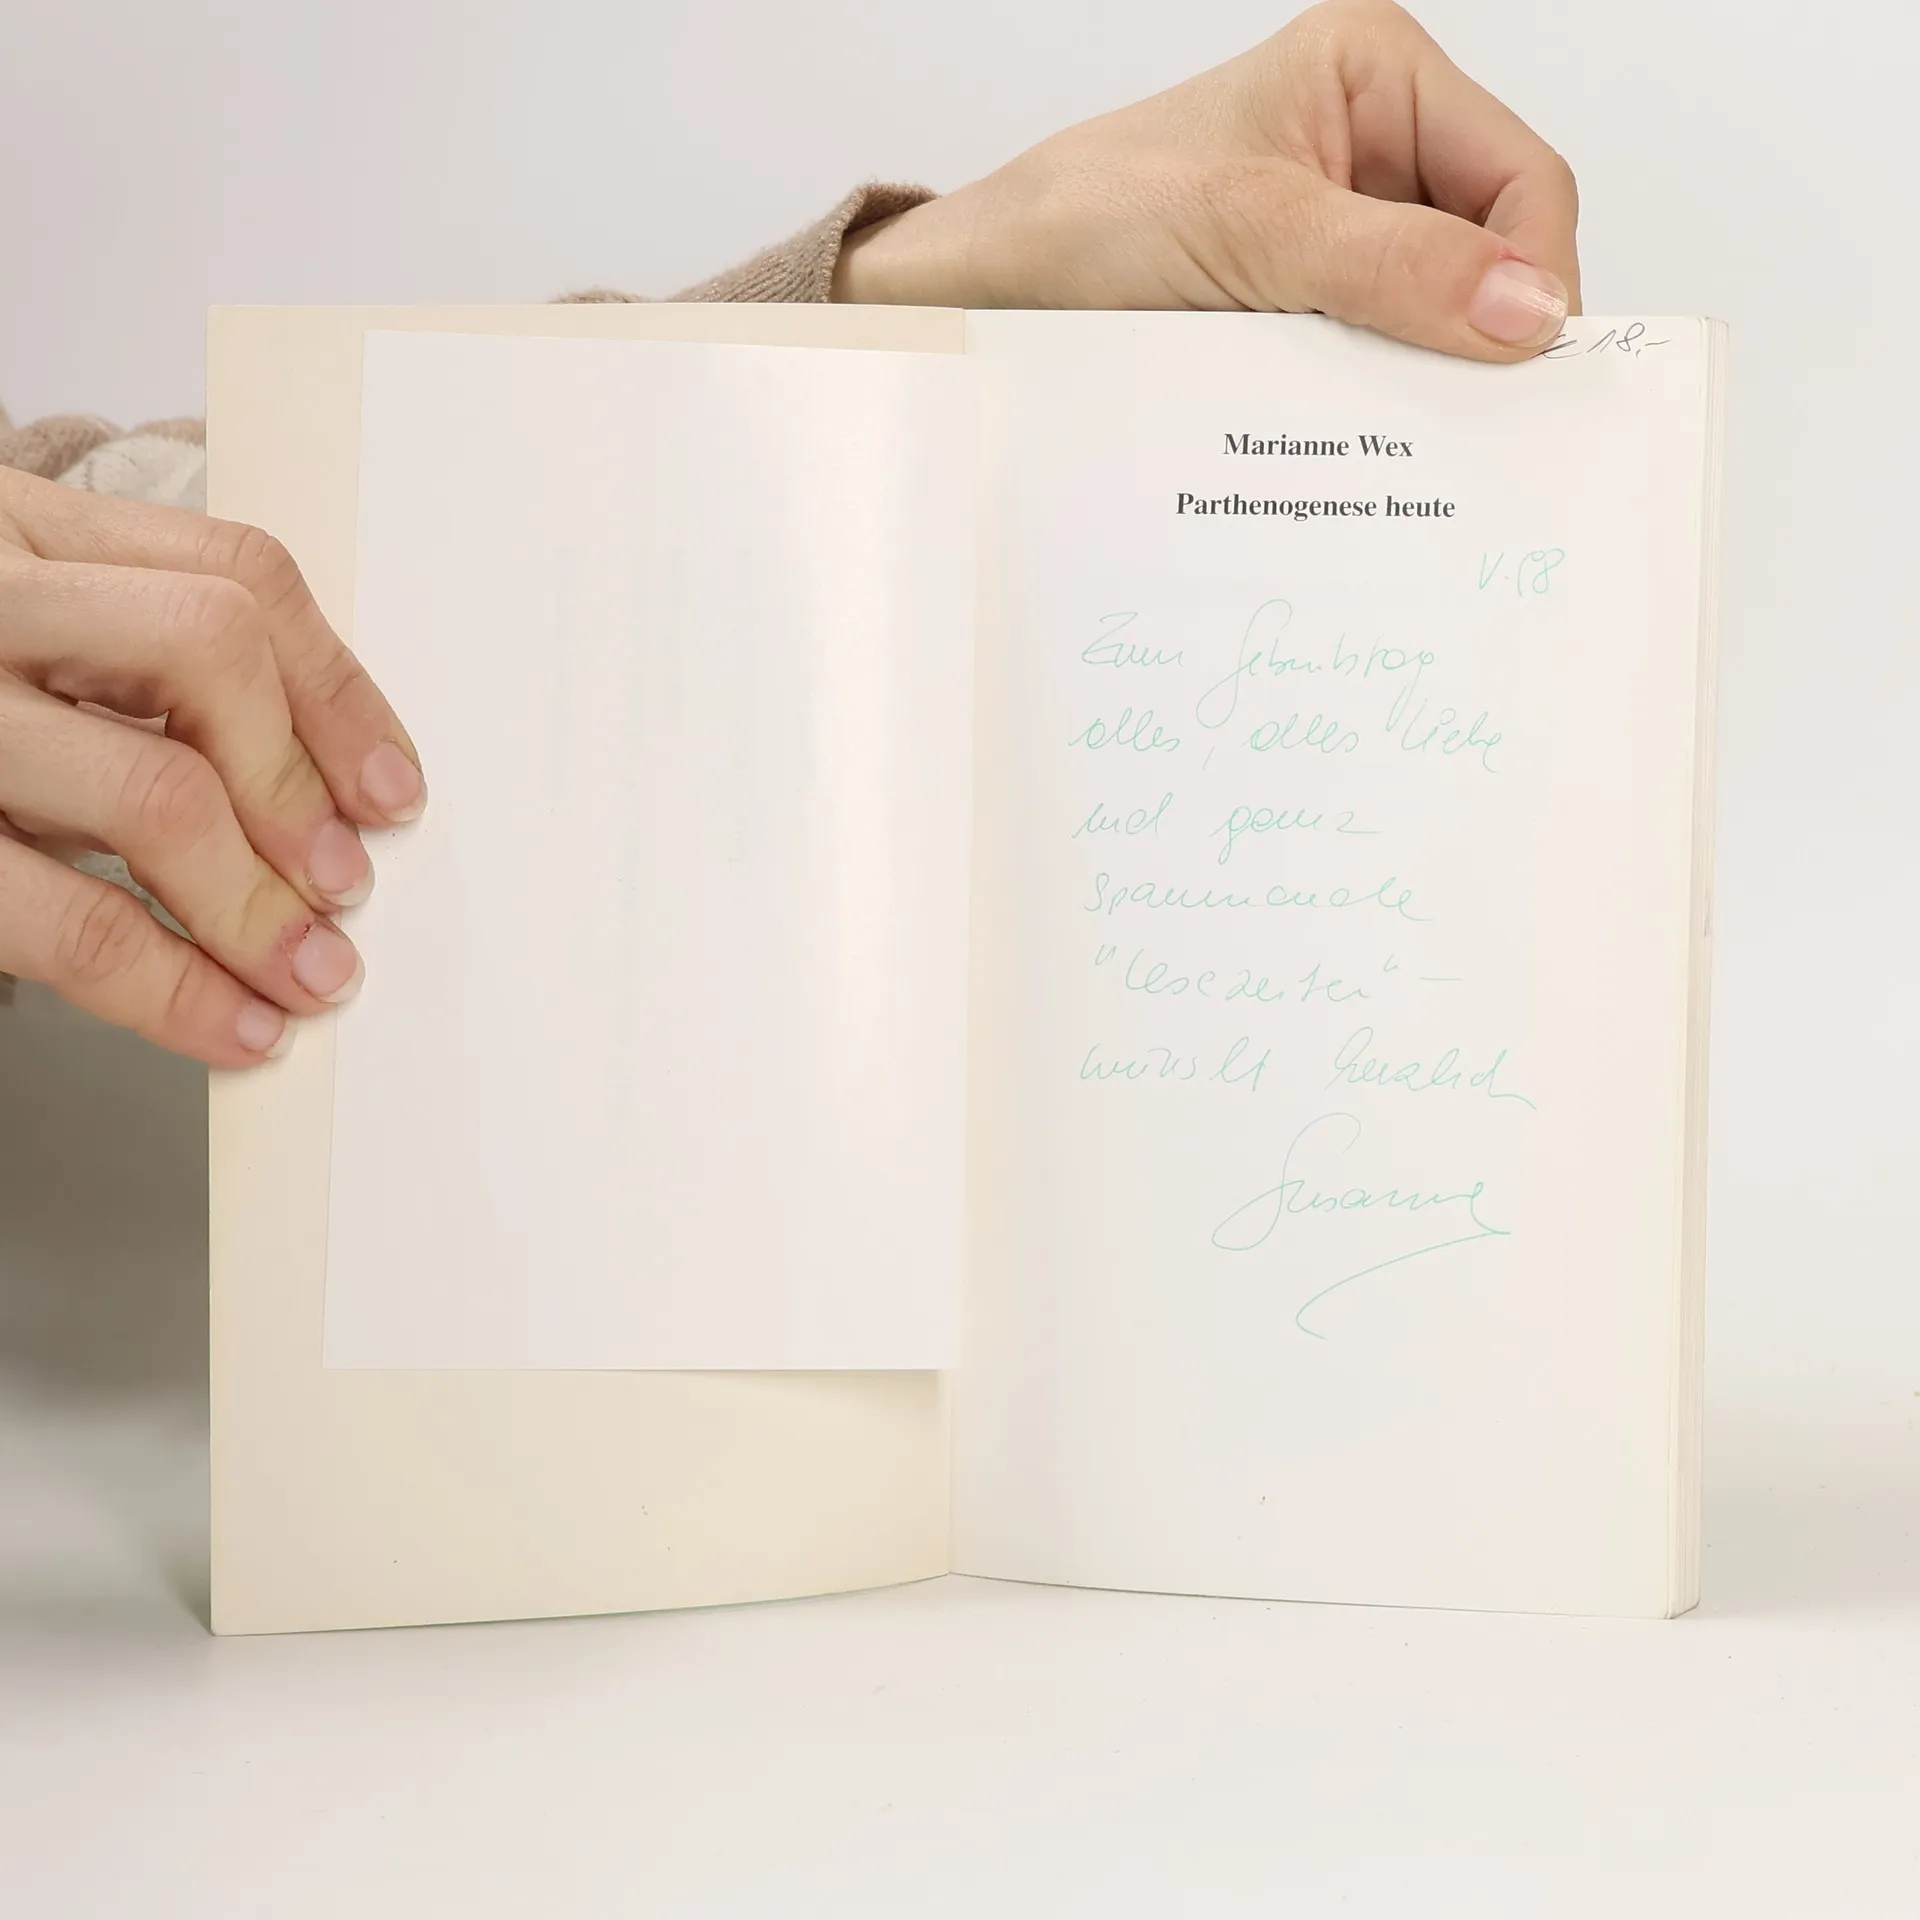 € 18,-
Marianne Wex
Parthenogenese heute
V. 98
Zum Geburtstag
alles, alles Liebe
und ganz
spannende
"Lesezeiten" –
wünscht herzlich
Susanne